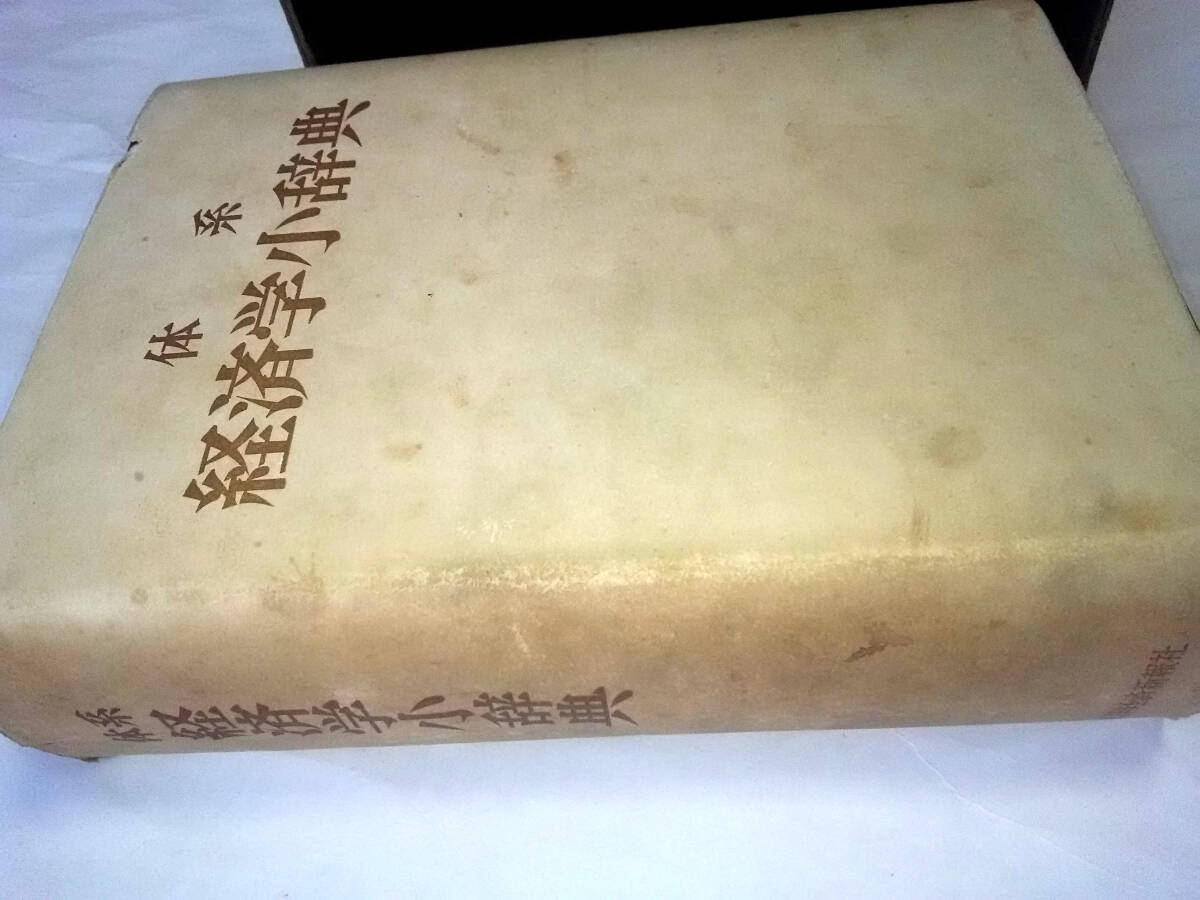 体系
経済学小辞典
体系 経済学小辞典
新報社